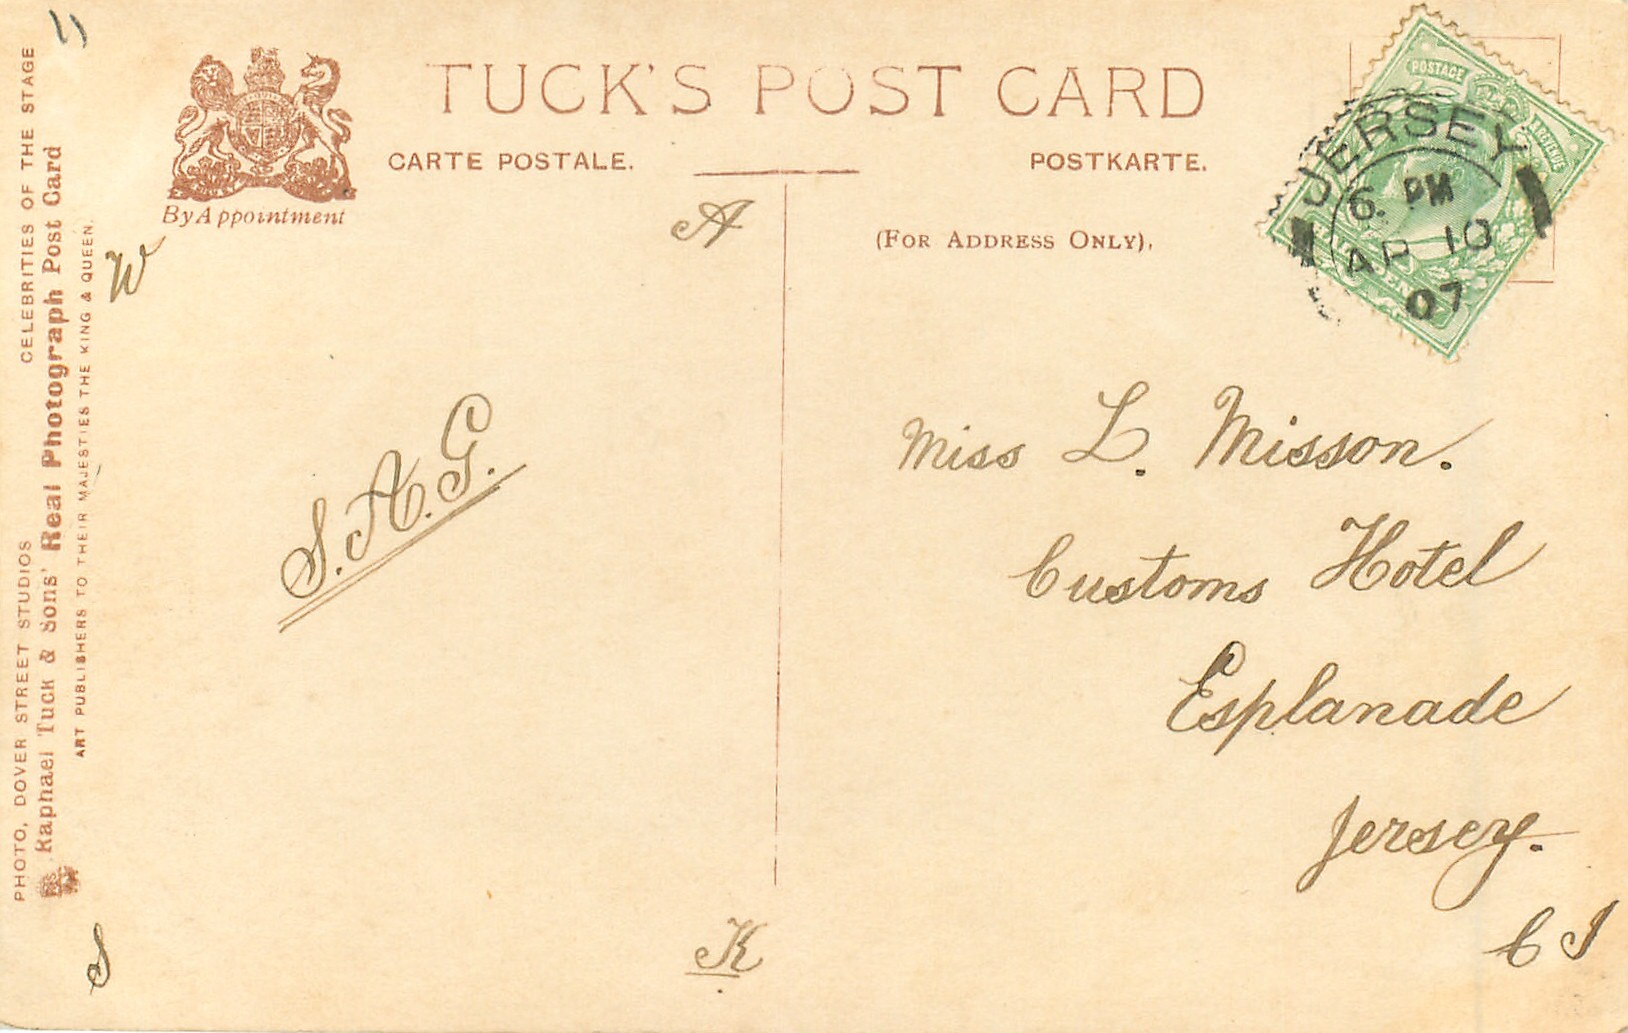 TUCK'S POST CARD
CARTE POSTALE.
POSTKARTE.
By Appointment
(FOR ADDRESS ONLY).
POSTAGE & REVENUE
JERSEY
6. PM
AP 10
07
PHOTO, DOVER STREET STUDIOS CELEBRITIES OF THE STAGE
Raphael Tuck & Sons' Real Photograph Post Card
ART PUBLISHERS TO THEIR MAJESTIES THE KING & QUEEN.
W
A
S.A.G.
S
K
Miss L. Misson.
Customs Hotel
Esplanade
Jersey.
C I